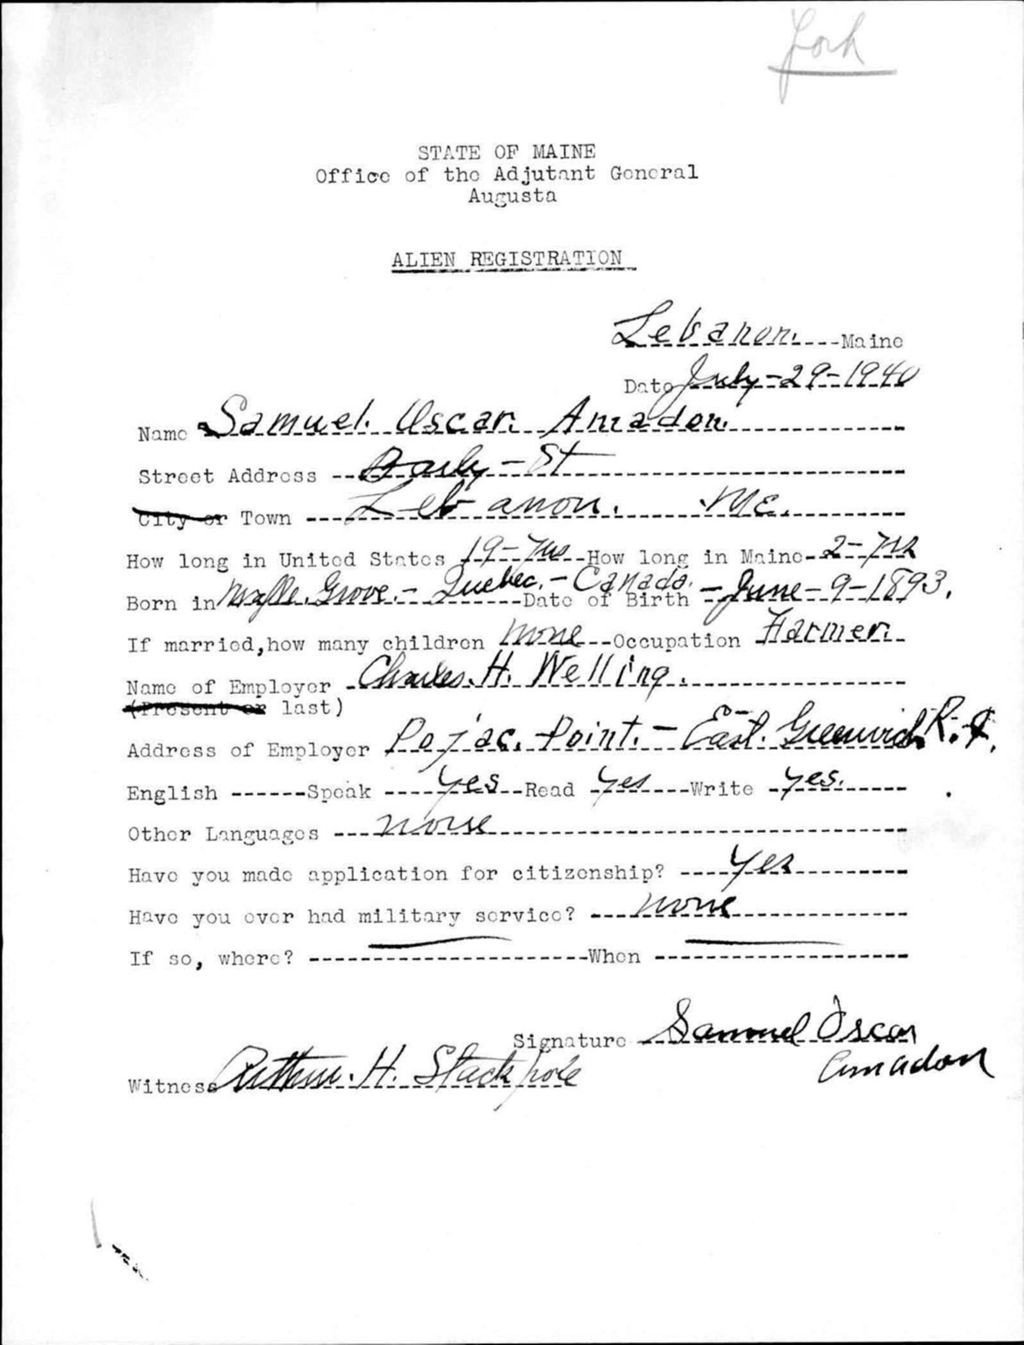 York
STATE OF MAINE
Office of the Adjutant General
Augusta
ALIEN REGISTRATION
Lebanon. Maine
Date July-29-1940
Name Samuel. Oscar. Amadon.
Street Address -St
City or Town Lebanon. Me.
How long in United States 19-yrs How long in Maine 2-yrs
Born in Maple. Grove.- Quebec.-Canada. Date of Birth -June-9-1893.
If married,how many children none Occupation Farmer.
Name of Employer Charles. H. Welling.
(Present or last)
Address of Employer Pojac. Point.- East. Greenwich R.I.
English Speak yes Read yes Write yes.
Other Languages none
Have you made application for citizenship? yes
Have you ever had military service? none
If so, where? When
Signature Samuel Oscar
Amadon
Witness Arthur. H. Stackpole